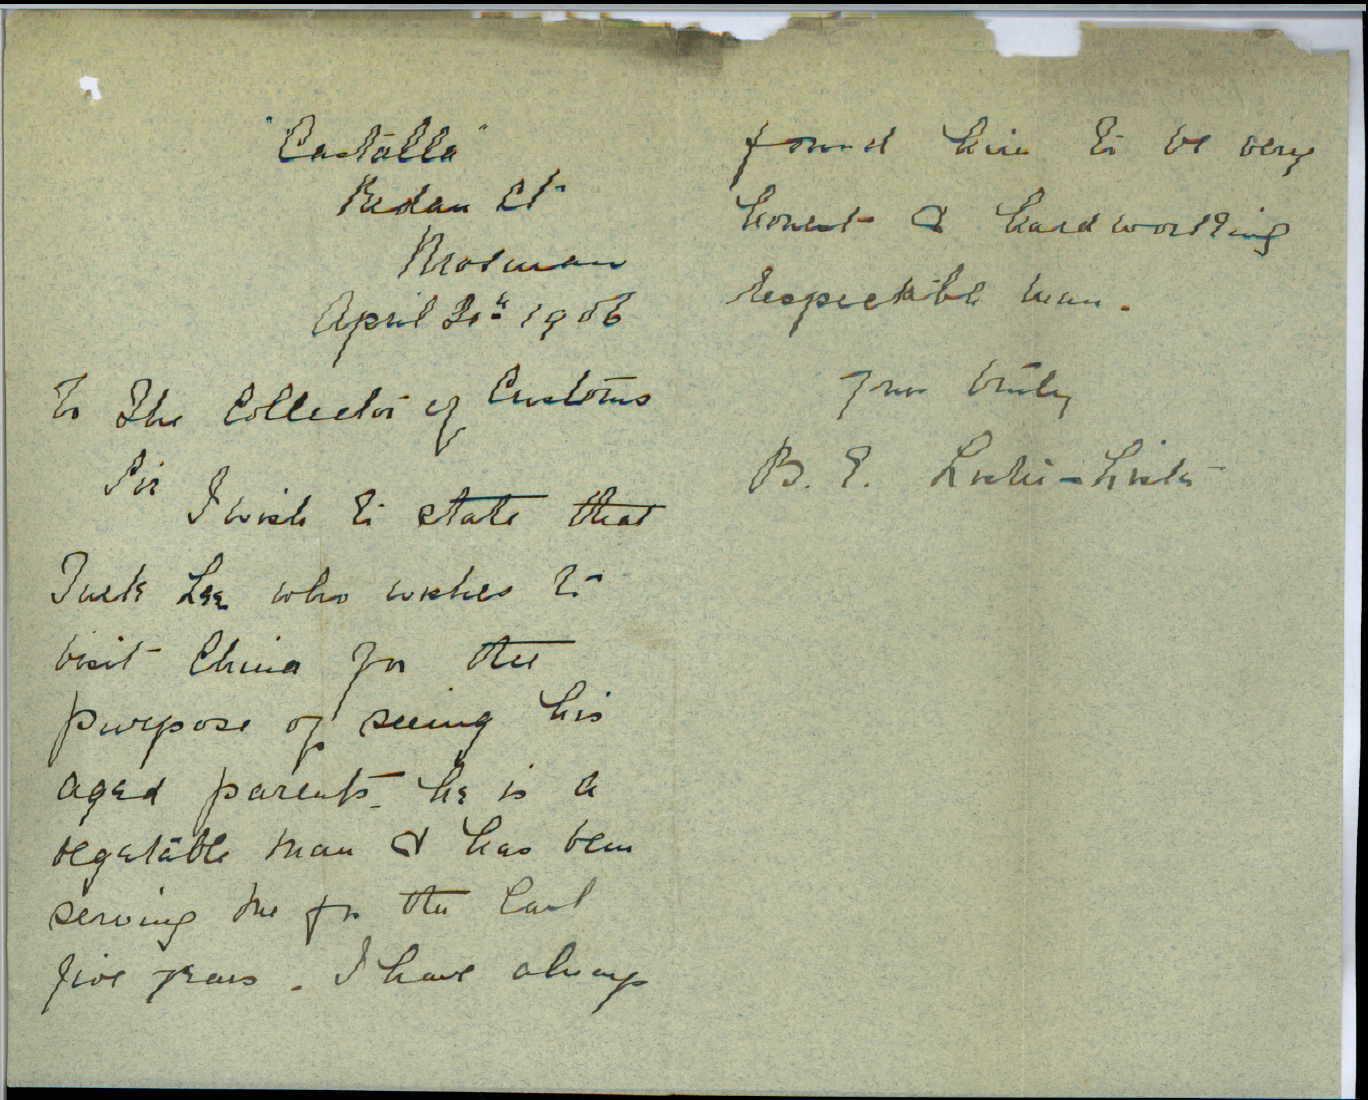 "Castalla"
Redan St
Mosman
April 30th 1906
To The Collector of Customs
Sir
I wish to state that
Tuck Lee who wishes to
visit China for the
purpose of seeing his
aged parents. he is a
vegetable man & has been
serving me for the last
five years. I have always
found him to be very
honest & hardworking
respectable man.
Yours truly
B. E.